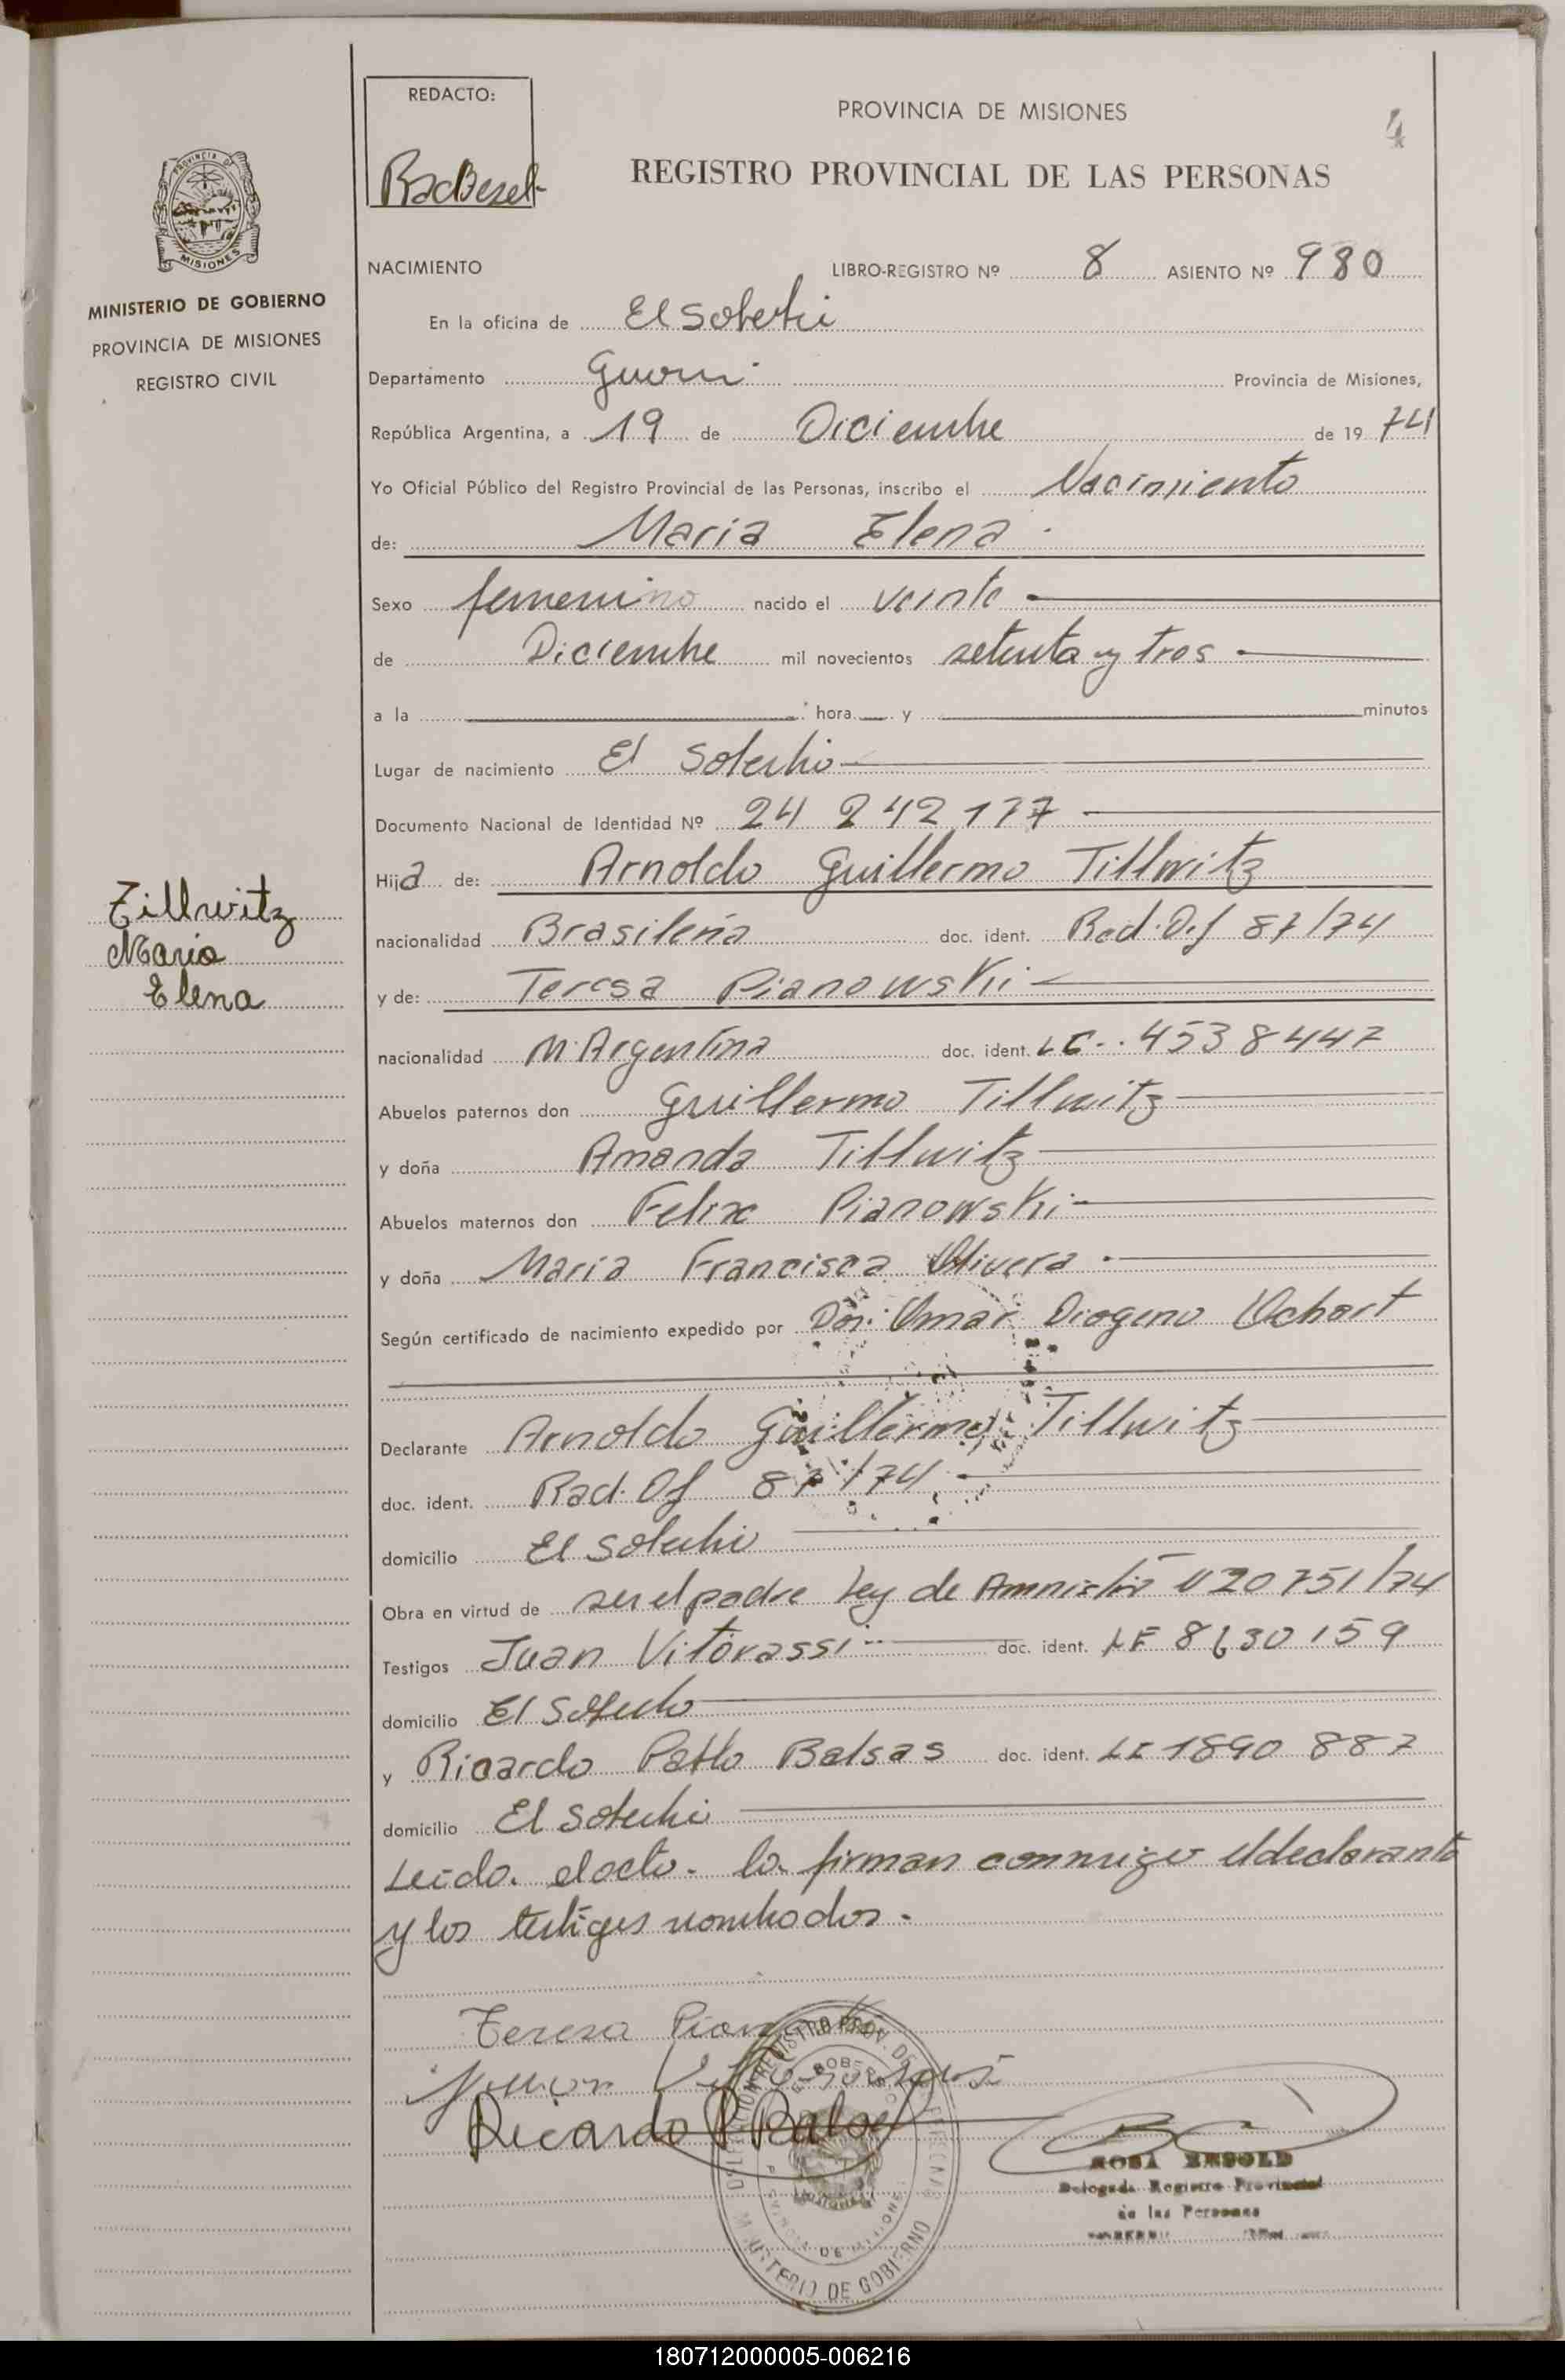 REDACTO:
PROVINCIA DE MISIONES
4
REGISTRO PROVINCIAL DE LAS PERSONAS
PROVINCIA DE
MISIONES
MINISTERIO DE GOBIERNO
PROVINCIA DE MISIONES
REGISTRO CIVIL
NACIMIENTO LIBRO-REGISTRO Nº 8 ASIENTO Nº 980
En la oficina de El Soberbio
Departamento Guarani Provincia de Misiones,
República Argentina, a 19 de Diciembre de 19 74
Yo Oficial Público del Registro Provincial de las Personas, inscribo el Nacimiento
de: Maria Elena
Sexo femenino nacido el veinte
de Diciembre mil novecientos setenta y tres
a la hora y minutos
Lugar de nacimiento El Soberbio
Documento Nacional de Identidad Nº 24 242 177
Hija de: Arnoldo Guillermo Tillwitz
nacionalidad Brasileña doc. ident. Rad. Of 87/74
y de: Teresa Pianowski
nacionalidad N. Argentina doc. ident. LC. 4538447
Tillwitz
Maria
Elena
Abuelos paternos don Guillermo Tillwitz
y doña Amanda Tillwitz
Abuelos maternos don Felix Pianowski
y doña Maria Francisca Olivera
Según certificado de nacimiento expedido por Dr. Omar Diogeno Ochart
Declarante Arnoldo Guillermo Tillwitz
doc. ident. Rad. Of 87/74
domicilio El Soberbio
Obra en virtud de ser el padre Ley de Amnistia 20751/74
Testigos Juan Vitorassi doc. ident. LE 8630159
domicilio El Soberbio
y Ricardo Pablo Balsas doc. ident. LE 1890 887
domicilio El Soberbio
Leida el acta la firman conmigo el declarante
y los testigos nombrados.
Teresa
Ricardo P Balsas
ROSA BESOLD
Delegada Registro Provincial
de las Personas
MINISTERIO DE GOBIERNO
180712000005-006216